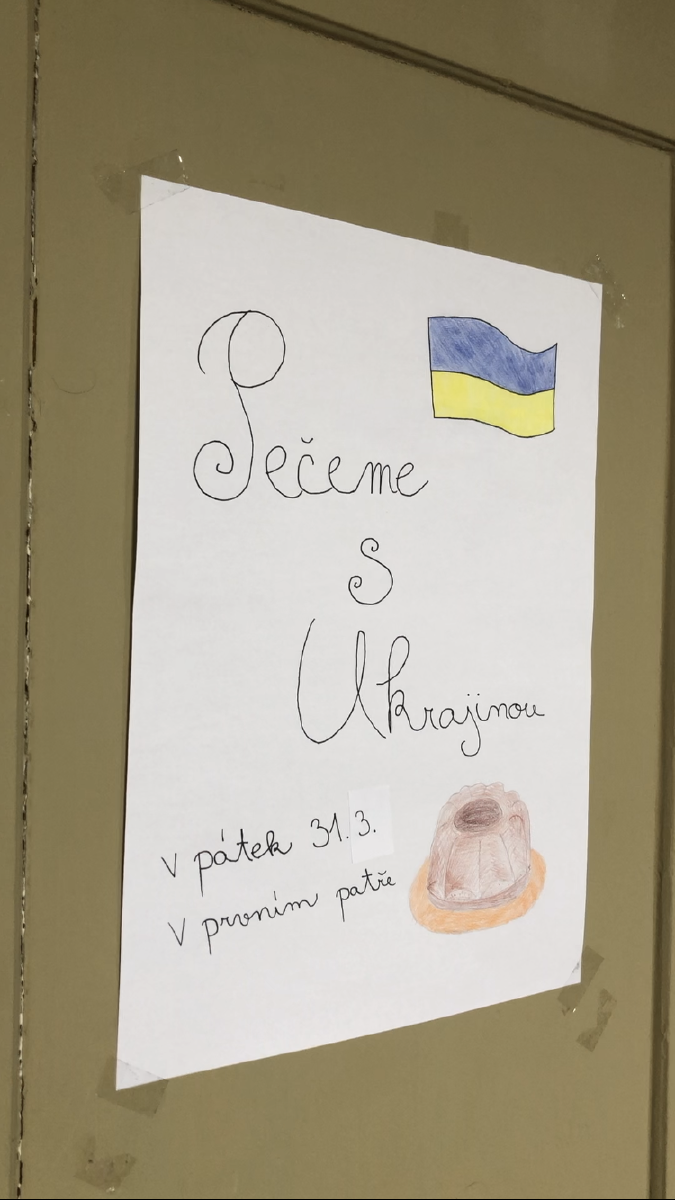 Pečeme
s
Ukrajinou
V pátek 31.3.
V prvním patře